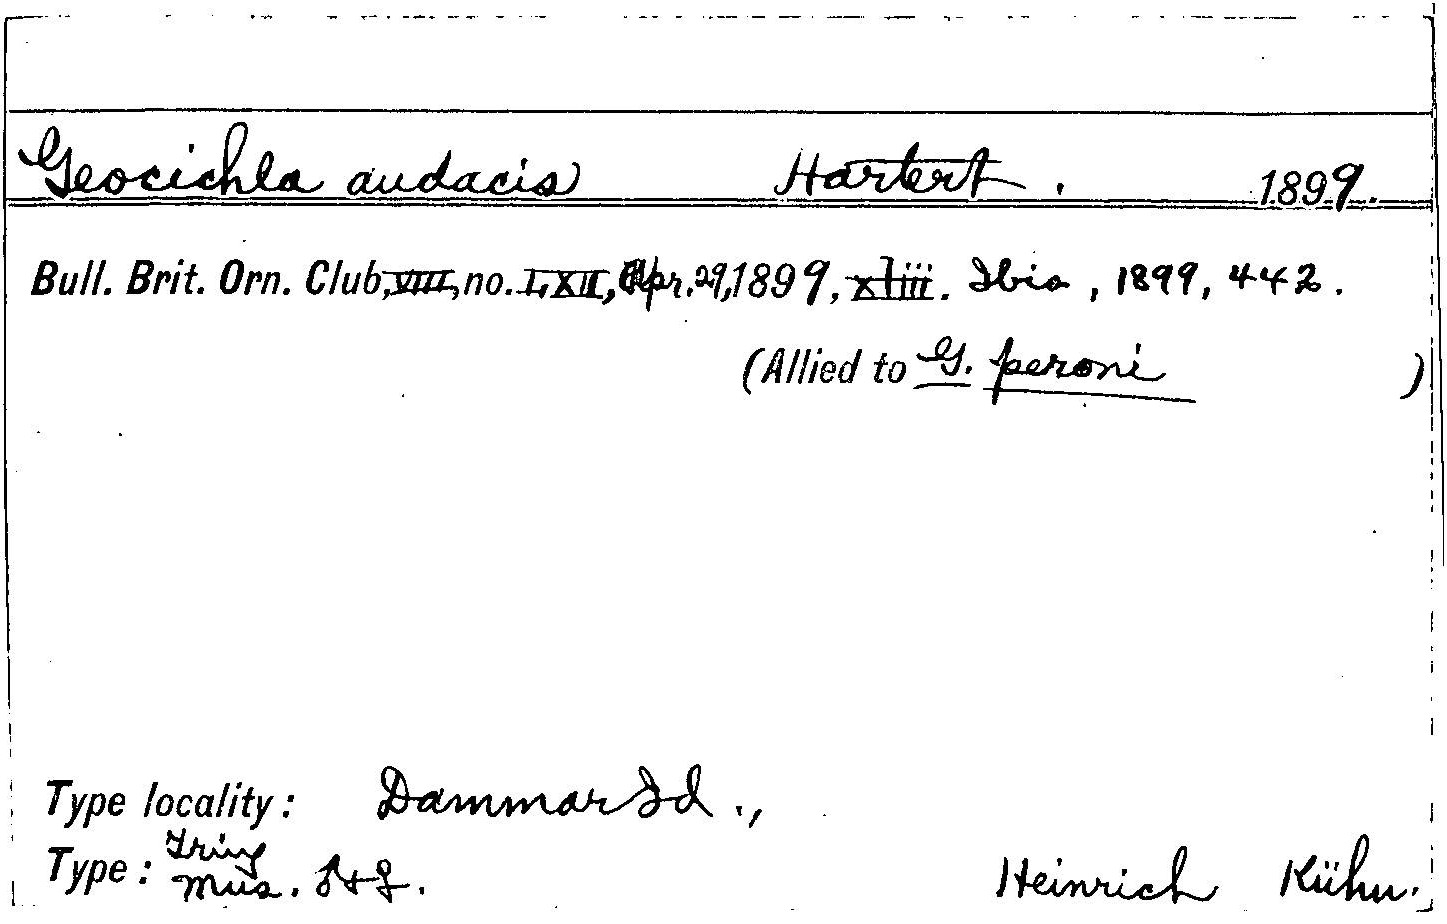 Geocichla audacis Hartert. 1899.
Bull. Brit. Orn. Club, VIII, no. LXII, Apr. 29, 1899, xliii. Ibis, 1899, 442.
(Allied to G. peroni )
Type locality: Dammar Id.,
Type: Tring
Mus. ♂+♀. Heinrich Kühn.